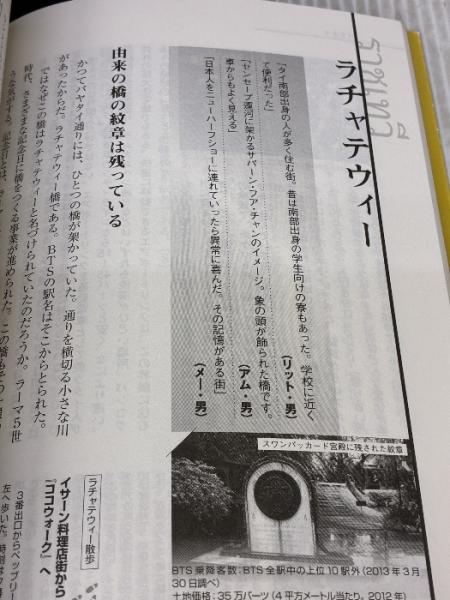 ราชเทวี
ラチャテウィー
「タイ南部出身の人が多く住む街。昔は南部出身の学生向けの寮もあった。学校に近く
て便利だった」
(リット・男)
「センセープ運河に架かるサパーン・フア・チャンのイメージ。象の頭が飾られた橋です。
車からもよく見える」
(アム・男)
「日本人をニューハーフショーに連れていったら異常に喜んだ。その記憶がある街」
(メー・男)
由来の橋の紋章は残っている
かつてパヤタイ通りには、ひとつの橋が架かっていた。通りを横切る小さな川
があったからだ。ラチャテウィー橋である。BTSの駅名はそこからとられた。
ではなぜこの橋はラチャテウィーと名づけられていたのだろうか。ラーマ5世
時代、さまざまな記念日に橋をつくる事業が進められた。この橋もそう
うな気がする。記念日とは、
スワンパッカード宮殿に残された紋章
BTS乗降客数:BTS全駅中の上位10駅外(2013年3月
30日調べ)
土地価格:35万バーツ(4平方メートル当たり。2012年)
ラチャテウィー散歩
イサーン料理店街から
『ココウォーク』へ
3番出口からペッブリー
左へ歩いた。